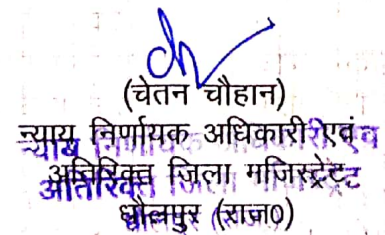 (चेतन चौहान)
न्याय निर्णायक अधिकारी एवं
अतिरिक्त जिला मजिस्ट्रेट
धौलपुर (राज0)